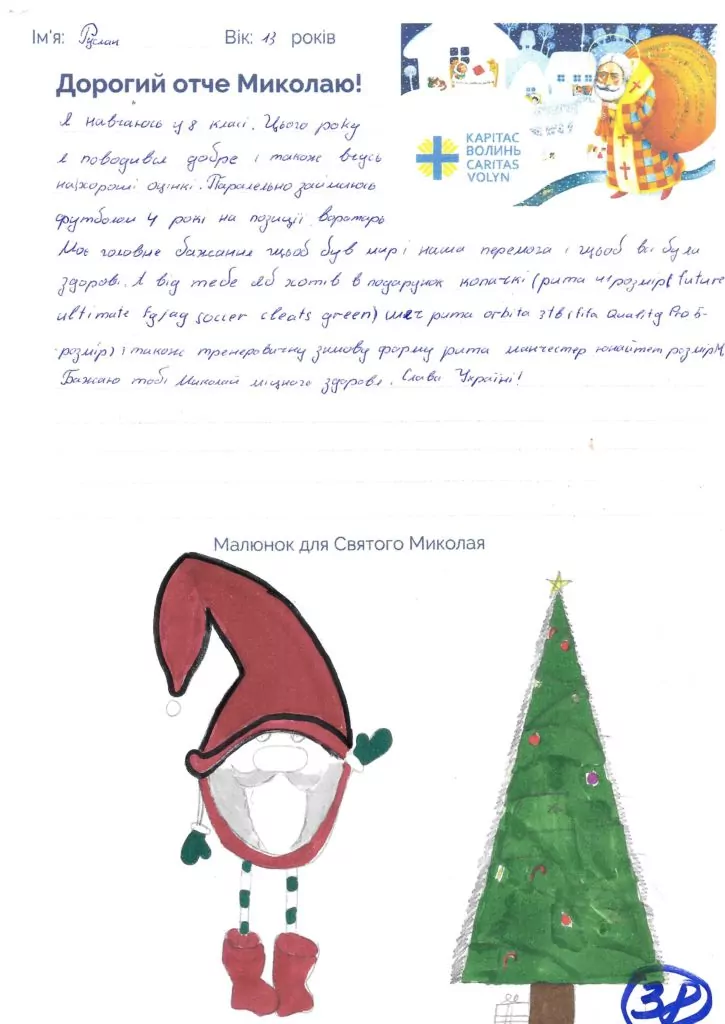 Ім'я: Руслан Вік: 13 років
Дорогий отче Миколаю!
КАРІТАС
ВОЛИНЬ
CARITAS
VOLYN
Я навчаюсь у 8 класі. Цього року
я поводився добре і також вчусь
на хороші оцінкі. Паралельно займаюсь
футболом 4 рокі на позиції воротарь
Моє головне бажання щоб був мир і наша перемога і щоб ви були
здорові. А від тебе яб хотів в подарунок копачкі (рита 41 розмір( future
ultimate fg/ag soccer cleats green) мяч рита orbita 3tb fifa Quality Pro 5-
розмір) і також тренеровичну зимову форму рита манчестер юнайтет розмір М
Бажаю тобі Миколай міцного здоровя. Слава Україні!
Малюнок для Святого Миколая
38